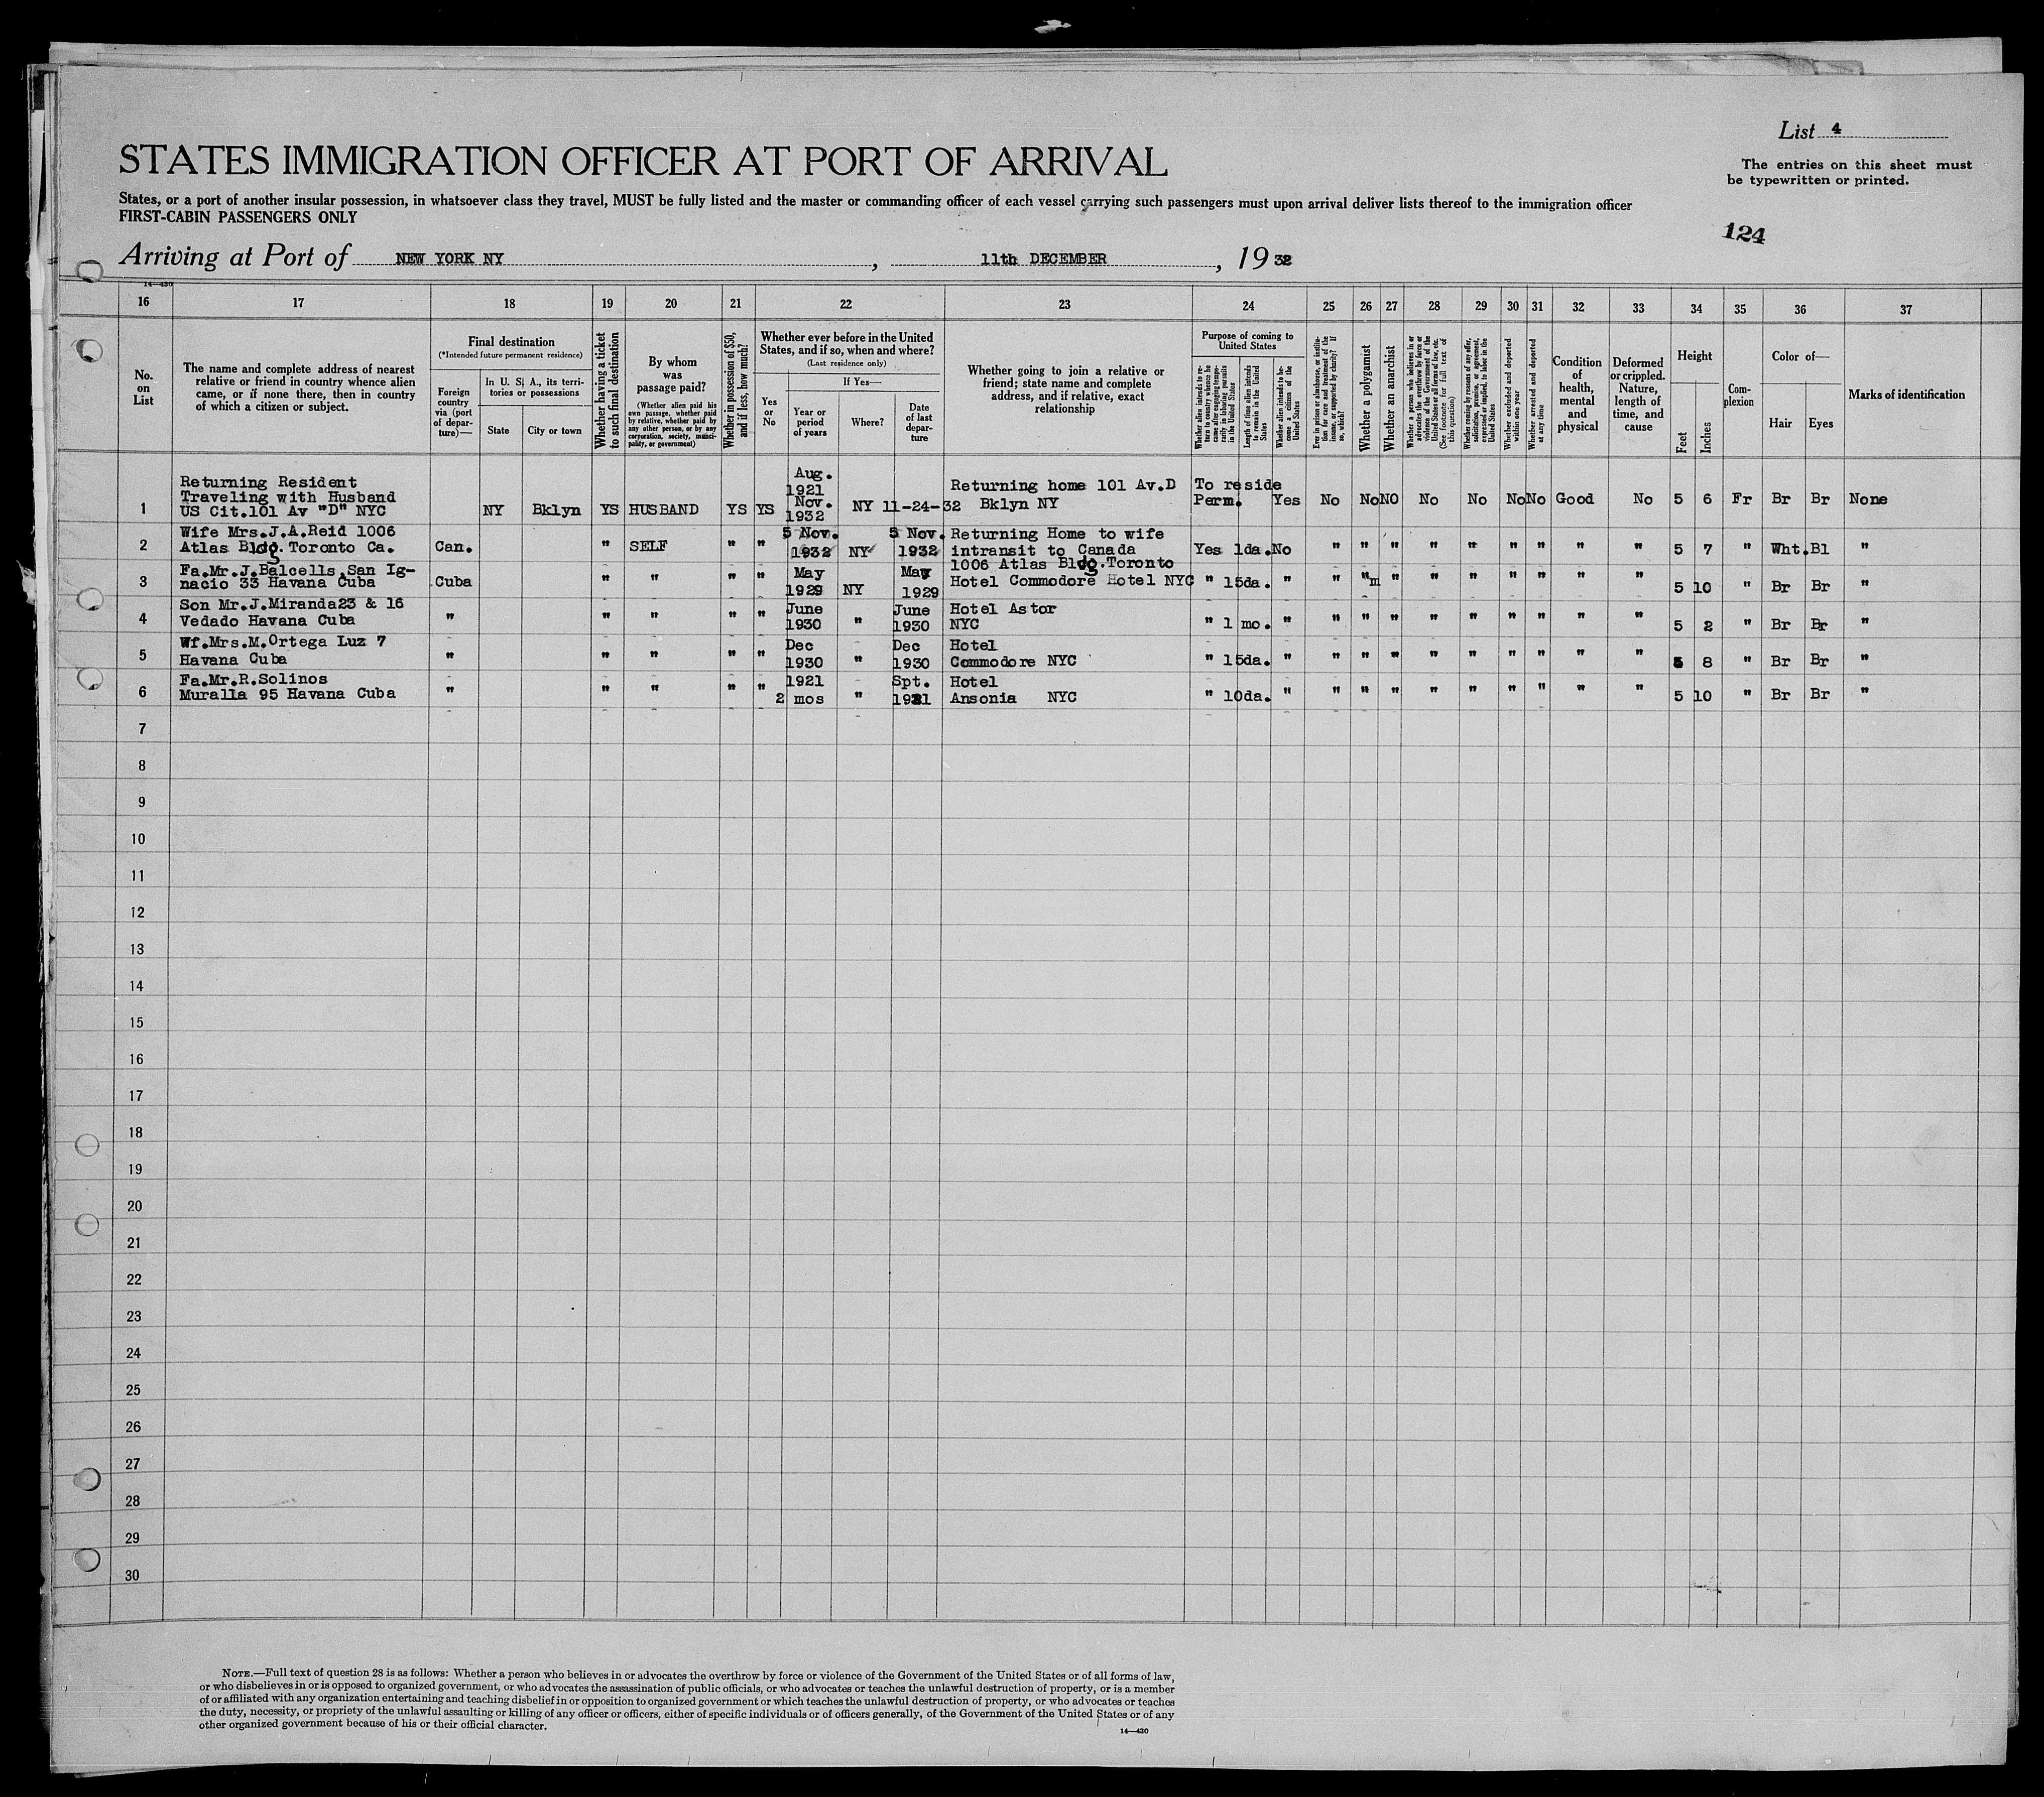 List 4
STATES IMMIGRATION OFFICER AT PORT OF ARRIVAL
The entries on this sheet must
be typewritten or printed.
States, or a port of another insular possession, in whatsoever class they travel, MUST be fully listed and the master or commanding officer of each vessel carrying such passengers must upon arrival deliver lists thereof to the immigration officer
FIRST-CABIN PASSENGERS ONLY
124
Arriving at Port of NEW YORK NY, 11th DECEMBER, 1932
14—430
16 17 18 19 20 21 22 23 24 25 26 27 28 29 30 31 32 33 34 35 36 37
No. on List
The name and complete address of nearest relative or friend in country whence alien came, or if none there, then in country of which a citizen or subject.
Final destination
(*Intended future permanent residence)
Foreign country via (port of departure)—
In U. S. A., its territories or possessions
State
City or town
Whether having a ticket to such final destination
By whom was passage paid?
(Whether alien paid his own passage, whether paid by relative, whether paid by any other person, or by any corporation, society, municipality, or government)
Whether in possession of $50, and if less, how much?
Whether ever before in the United States, and if so, when and where?
(Last residence only)
Yes or No
If Yes—
Year or period of years
Where?
Date of last departure
Whether going to join a relative or friend; state name and complete address, and if relative, exact relationship
Purpose of coming to United States
Whether alien intends to return to country whence he came after engaging temporarily in laboring pursuits in the United States
Length of time alien intends to remain in the United States
Whether alien intends to become a citizen of the United States
Ever in prison or almshouse, or institution for care and treatment of the insane, or supported by charity? If so, which?
Whether a polygamist
Whether an anarchist
Whether a person who believes in or advocates the overthrow by force or violence of the Government of the United States or all forms of law, etc. (See footnote for full text of this question)
Whether coming by reasons of any offer, solicitation, promise, or agreement, expressed or implied, to labor in the United States
Whether excluded and deported within one year
Whether arrested and deported at any time
Condition of health, mental and physical
Deformed or crippled. Nature, length of time, and cause
Height
Feet
Inches
Complexion
Color of—
Hair
Eyes
Marks of identification
1 Returning Resident Traveling with Husband US Cit.101 Av "D" NYC NY Bklyn YS HUSBAND YS YS Aug. 1921 Nov. 1932 NY 11-24-32 Returning home 101 Av.D Bklyn NY To reside Perm. Yes No No NO No No No No Good No 5 6 Fr Br Br None
2 Wife Mrs.J.A.Reid 1006 Atlas Bldg.Toronto Ca. Can. " SELF " " 5 Nov. 1932 NY 5 Nov. 1932 Returning Home to wife intransit to Canada 1006 Atlas Bldg.Toronto Yes 1da. No " " " " " " " " " 5 7 " Wht. Bl "
3 Fa.Mr.J.Balcells San Ignacio 33 Havana Cuba Cuba " " " " May 1929 NY May 1929 Hotel Commodore Hotel NYC " 15da. " " "m " " " " " " " 5 10 " Br Br "
4 Son Mr.J.Miranda23 & 16 Vedado Havana Cuba " " " " " June 1930 " June 1930 Hotel Astor NYC " 1 mo. " " " " " " " " " " 5 2 " Br Br "
5 Wf.Mrs.M.Ortega Luz 7 Havana Cuba " " " " " Dec 1930 " Dec 1930 Hotel Commodore NYC " 15da. " " " " " " " " " " 5 8 " Br Br "
6 Fa.Mr.R.Solinos Muralla 95 Havana Cuba " " " " " 1921 2 mos " Spt. 1921 Hotel Ansonia NYC " 10da. " " " " " " " " " " 5 10 " Br Br "
7
8
9
10
11
12
13
14
15
16
17
18
19
20
21
22
23
24
25
26
27
28
29
30
NOTE.—Full text of question 28 is as follows: Whether a person who believes in or advocates the overthrow by force or violence of the Government of the United States or of all forms of law,
or who disbelieves in or is opposed to organized government, or who advocates the assassination of public officials, or who advocates or teaches the unlawful destruction of property, or is a member
of or affiliated with any organization entertaining and teaching disbelief in or opposition to organized government or which teaches the unlawful destruction of property, or who advocates or teaches
the duty, necessity, or propriety of the unlawful assaulting or killing of any officer or officers, either of specific individuals or of officers generally, of the Government of the United States or of any
other organized government because of his or their official character.
14—430